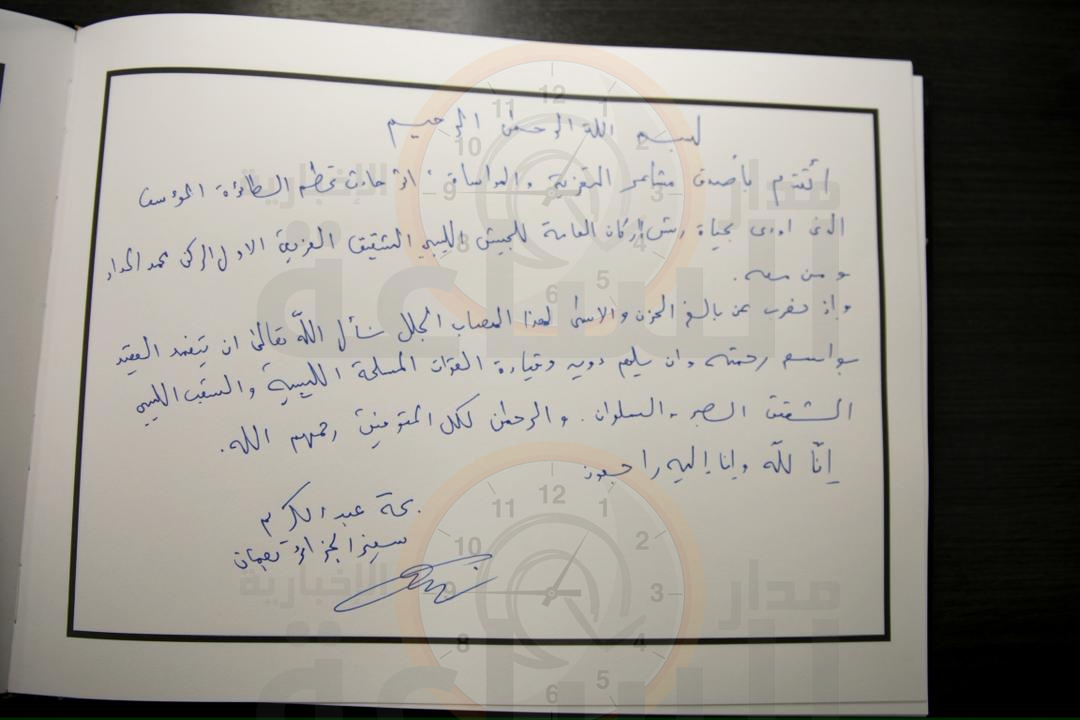 بسم الله الرحمن الرحيم
أتقدم بأصدق مشاعر التعزية والمواساة، إثر حادث تحطم الطائرة المؤسف
الذي اودى بحياة رئيس الأركان العامة للجيش الليبي الشقيق الفريق الاول الركن محمد الحداد
و من معه.
وإذ نعرب عن بالغ الحزن والاسى لهذا المصاب الجلل نسأل الله تعالى ان يتغمد الفقيد
بواسع رحمته وان يلهم ذويه وقيادة القوات المسلحة الليبية والشعب الليبي
الشقيق الصبر والسلوان. و الرحمة لكل المتوفين رحمهم الله.
إنّا لله وإنا إليه راجعون
عبد الكريم
سفير الجزائر بعمان
مدار
الساعة
الإخبارية
12
1
2
3
4
5
6
8
9
10
11
مدار
الساعة
الإخبارية
12
1
2
3
4
5
6
8
9
10
11